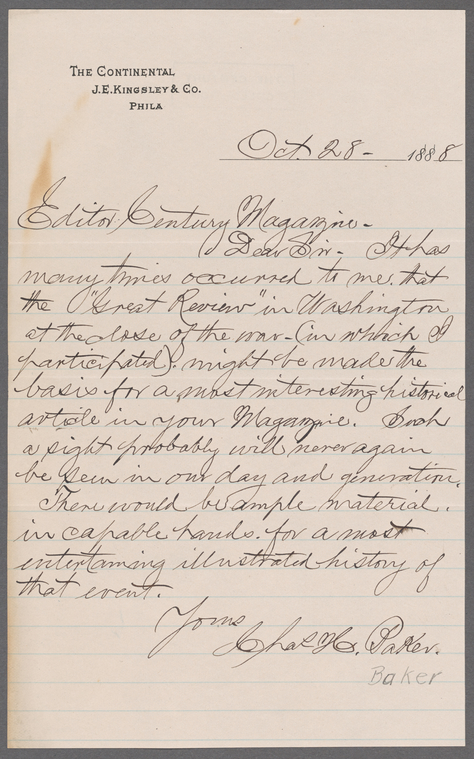 THE CONTINENTAL
J.E. KINGSLEY & CO.
PHILA
Oct. 28 - 1888
Editor Century Magazine -
Dear Sir - It has
many times occurred to me, that
the "Great Review" in Washington
at the close of the war - (in which I
participated), might be made the
basis for a most interesting historical
article in your Magazine. Such
a sight probably will never again
be seen in our day and generation.
There would be ample material,
in capable hands, for a most
entertaining illustrated history of
that event.
Yours
Chas. H. Baker.
Baker